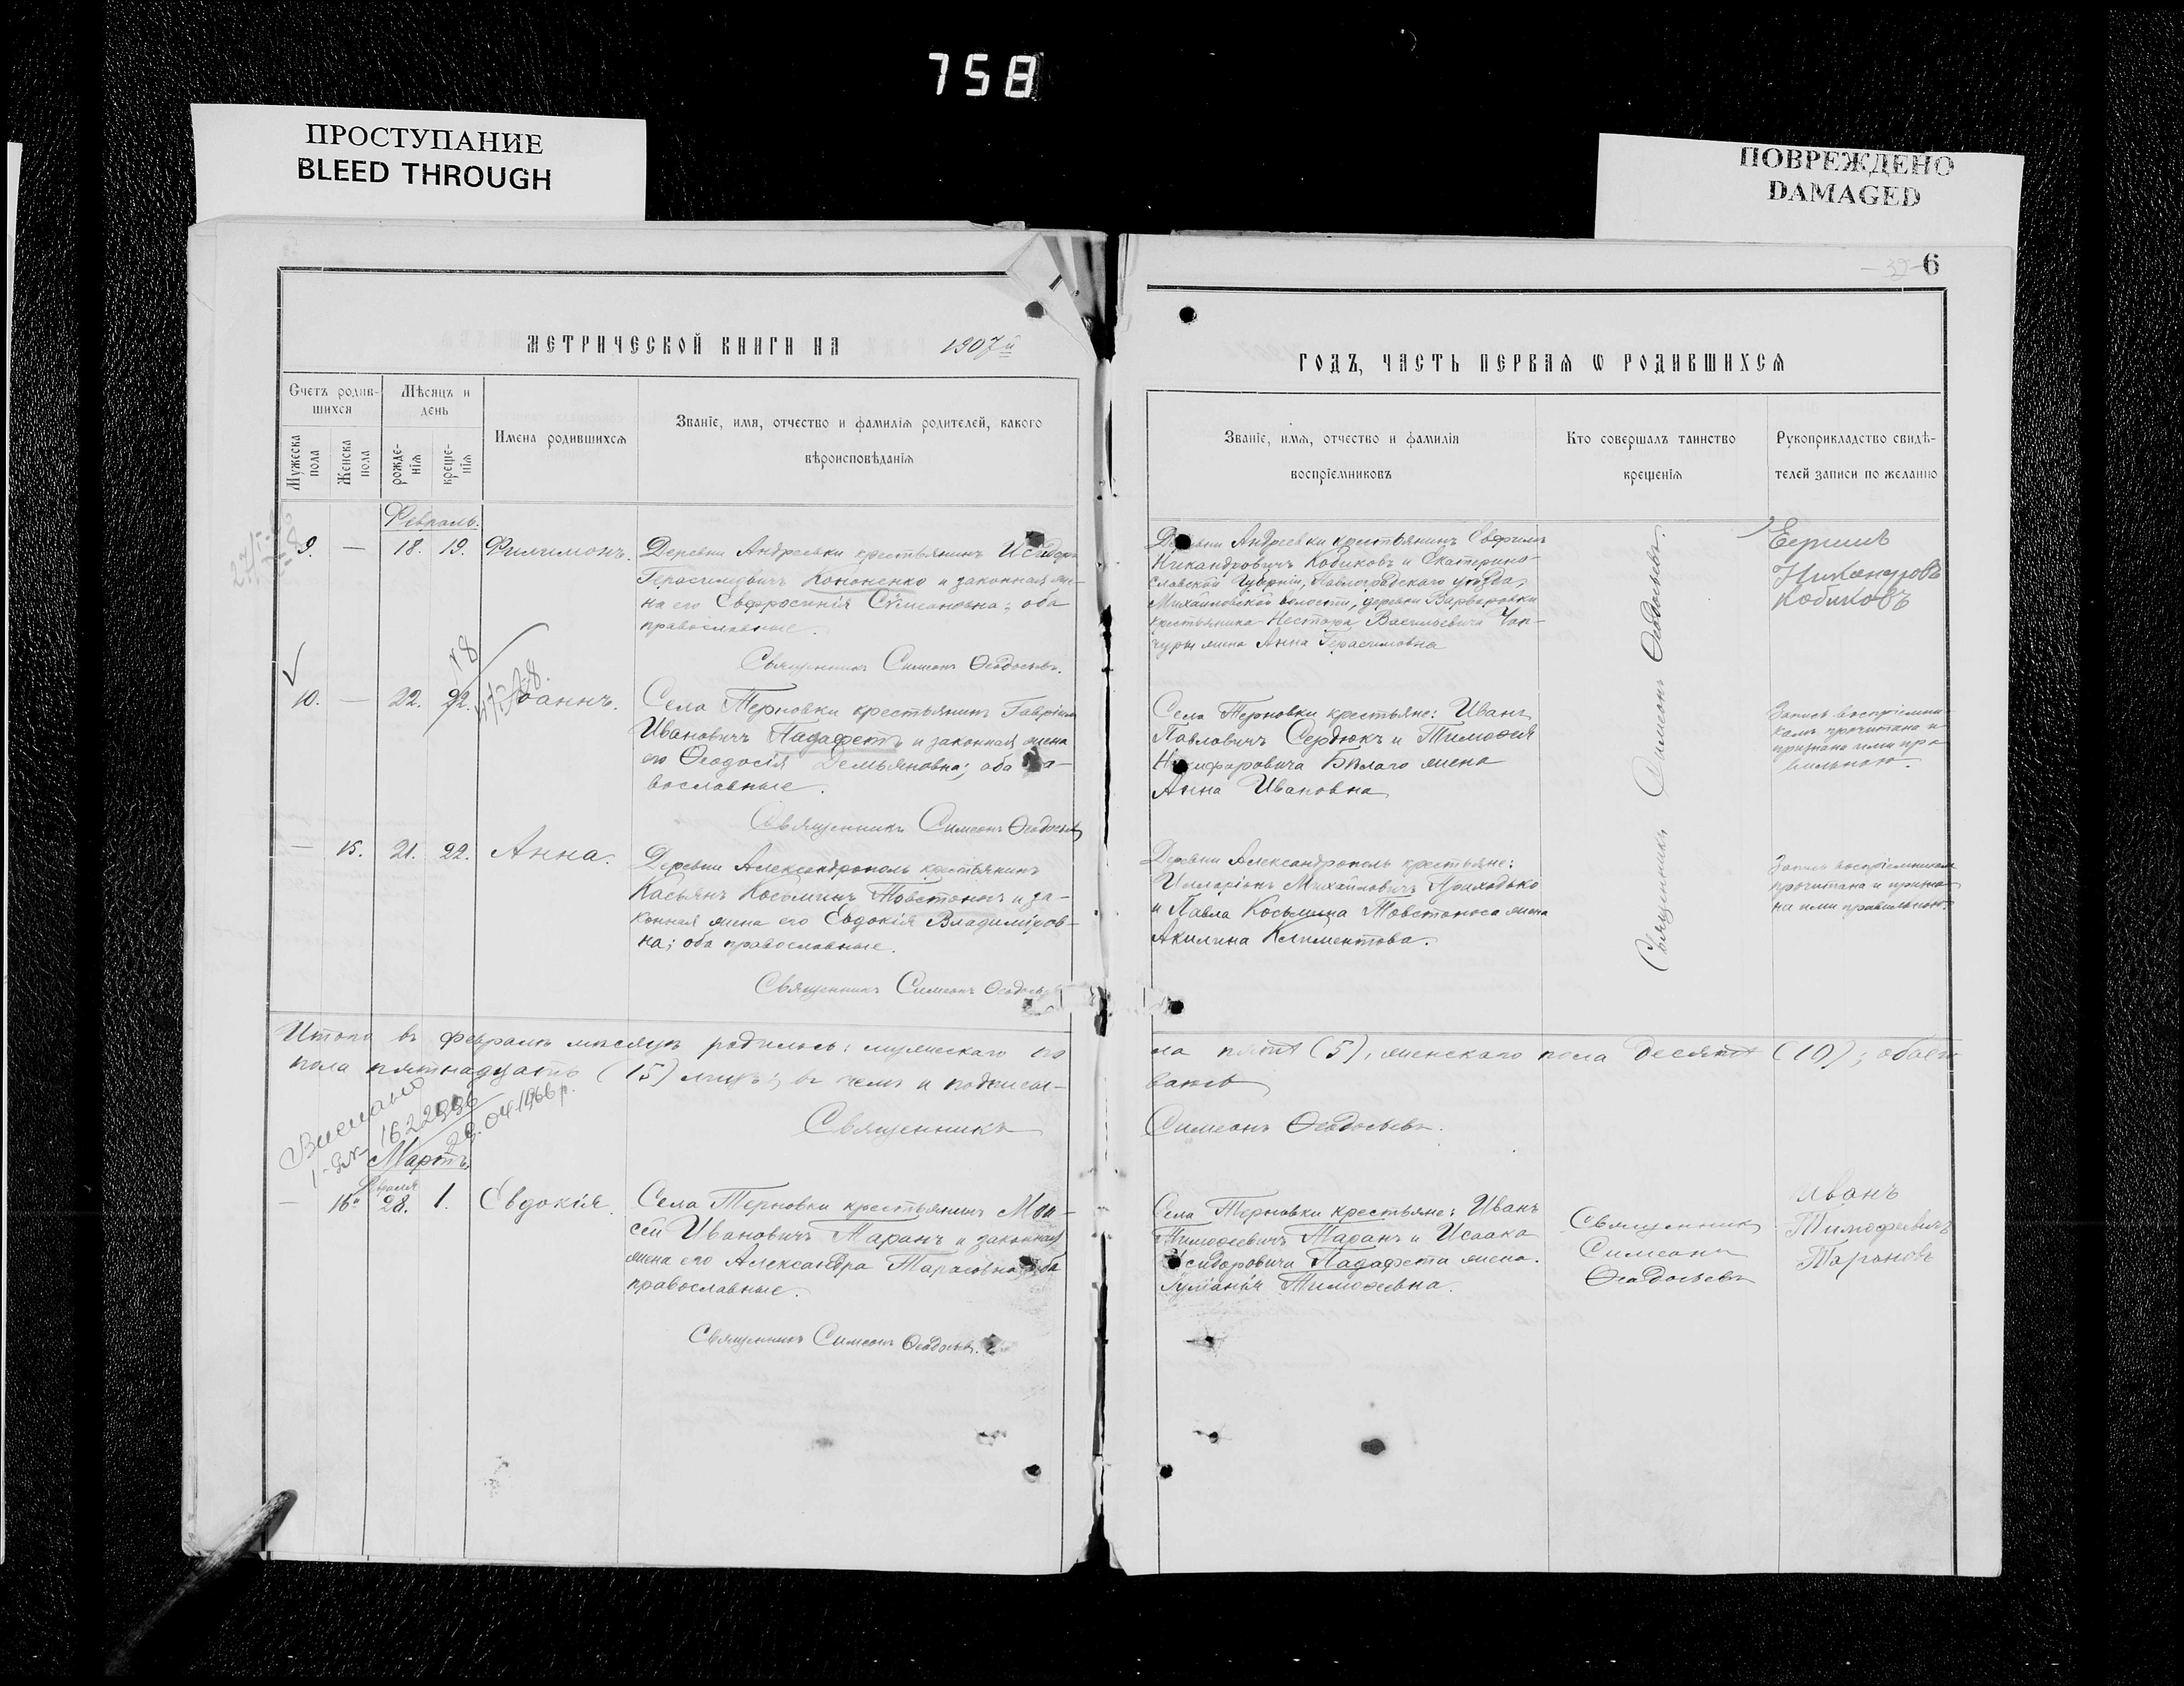 758
ПРОСТУПАНИЕ
BLEED THROUGH
ПОВРЕЖДЕНО
DAMAGED
6
МЕТРИЧЕСКОЙ КНИГИ НА 1907й
ГОДЪ, ЧАСТЬ ПЕРВАЯ Ѡ РОДИВШИХСЯ
Счетъ родив-
шихся
Мужеска
пола
Женска
пола
Мѣсяцъ и
день
рожде-
нія
креще-
нія
Имена родившихся
Званіе, имя, отчество и фамилія родителей, какого
вѣроисповѣданія
Званіе, имя, отчество и фамилія
воспріемниковъ
Кто совершалъ таинство
крещенія
Рукоприкладство свидѣ-
телей записи по желанію
Февраль.
9. — 18. 19. Филимонъ.
Деревни Андреевки крестьянинъ Исидоръ
Герасимовичъ Кононенко и законная же-
на его Евфросинія Сѵмеоновна; оба
православные.
Священникъ Симеонъ Ѳеодосьевъ.
Деревни Андреевки крестьянинъ Евфимъ
Никандровичъ Кобиковъ и Екатерино-
славской Губерніи, Павлоградскаго уѣзда,
Михайловской волости, деревни Варваровки
крестьянина Нестора Васильевича Чап-
чуры жена Анна Герасимовна
Никандровъ
Кобиковъ
10. — 22. 22. Іоаннъ.
Села Терновки крестьянинъ Гавріилъ
Ивановичъ Падафетъ и законная жена
его Ѳеодосія Демьяновна; оба пра-
вославные.
Священникъ Симеонъ Ѳеодосьевъ
Села Терновки крестьяне: Иванъ
Павловичъ Сердюкъ и Тимоѳея
Никифоровича Бѣлаго жена
Анна Ивановна
Запись воспріемни-
камъ прочитана и
признана ими пра-
вильною.
— 15. 21. 22. Анна.
Деревни Александрополь крестьянинъ
Касьянъ Косьминъ Товстоносъ и за-
конная жена его Евдокія Владиміров-
на; оба православные.
Священникъ Симеонъ Ѳеодосьевъ
Деревни Александрополь крестьяне:
Илларіонъ Михайловичъ Приходько
и Павла Косьмина Товстоноса жена
Акилина Климентова.
Запись воспріемникамъ
прочитана и призна-
на ими правильною.
Священникъ Симеонъ Ѳеодосьевъ.
Итого въ февралѣ мѣсяцѣ родилось: мужескаго по-
ла пять (5), женскаго пола десять (10); обоего
пола пятнадцать (15) лицъ; въ чемъ и подписы-
ваюсь
Священникъ
Симеонъ Ѳеодосьевъ.
Мартъ.
Февраля
— 16. 28. 1. Евдокія.
Села Терновки крестьянинъ Мои-
сей Ивановичъ Таранъ и законная
жена его Александра Тарасовна; оба
православные.
Священникъ Симеонъ Ѳеодосьевъ.
Села Терновки крестьяне: Иванъ
Тимоѳеевичъ Таранъ и Исаака
Исидоровича Падафета жена.
Іуліанія Тимоѳеевна.
Священникъ
Симеонъ
Ѳеодосьевъ
Иванъ
Тимофеевичъ
Тарановъ